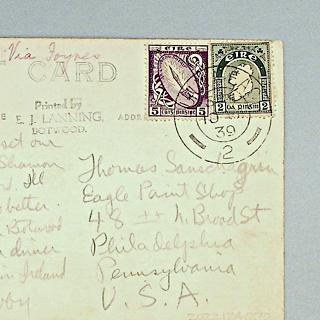 Via Foynes
CARD
Printed by
E. J. LANNING,
BOTWOOD.
ADDRE
ÉIRE
5 5
ÉIRE
2 2
39
2
set our
Shannon
Ill
better.
Botwood
dinner
in Ireland
Thomas
Eagle Paint Shop
48 N. Broad St
Philadelphia
Pennsylvania
U. S. A.